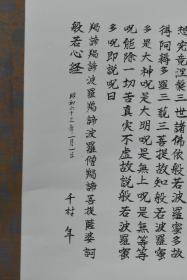 想究竟涅槃三世諸佛依般若波羅蜜多故
得阿耨多羅三藐三菩提故知般若波羅蜜
多是大神呪是大明呪是無上呪是無等等
呪能除一切苦真実不虚故説般若波羅蜜
多呪即説呪曰
羯諦羯諦波羅羯諦波羅僧羯諦菩提薩婆訶
般若心経
昭和六十三年一月一日
千村 年